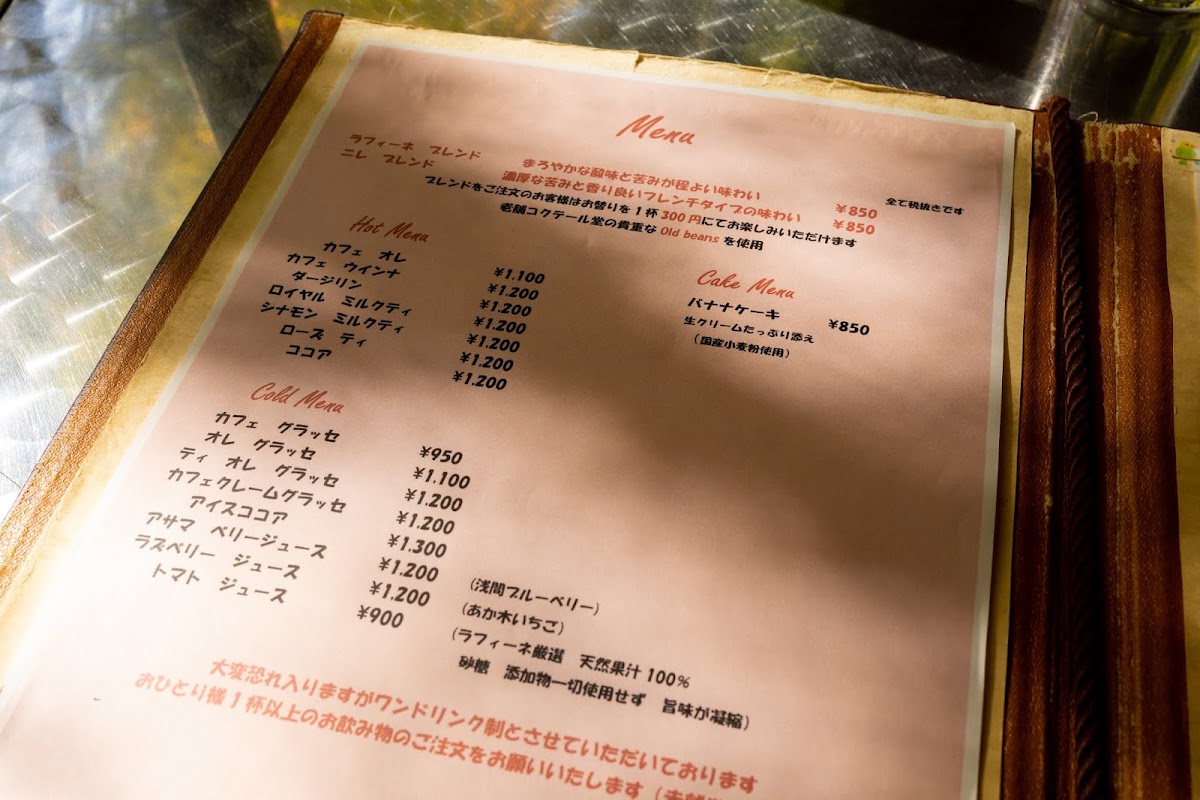 Menu
全て税抜きです
ラフィーネ ブレンド まろやかな酸味と苦みが程よい味わい ¥850
ニレ ブレンド 濃厚な苦みと香り良いフレンチタイプの味わい ¥850
ブレンドをご注文のお客様はお替りを1杯300円にてお楽しみいただけます
老舗コクテール堂の貴重な Old beans を使用
Hot Menu
カフェ オレ ¥1.100
カフェ ウインナ ¥1.200
ダージリン ¥1.200
ロイヤル ミルクティ ¥1.200
シナモン ミルクティ ¥1.200
ローズ ティ ¥1.200
ココア ¥1.200
Cake Menu
バナナケーキ ¥850
生クリームたっぷり添え
(国産小麦粉使用)
Cold Menu
カフェ グラッセ ¥950
オレ グラッセ ¥1.100
ティ オレ グラッセ ¥1.200
カフェクレームグラッセ ¥1.200
アイスココア ¥1.300
アサマ ベリージュース ¥1.200 (浅間ブルーベリー)
ラズベリー ジュース ¥1.200 (あか木いちご)
トマト ジュース ¥900 (ラフィーネ厳選 天然果汁100%
砂糖 添加物一切使用せず 旨味が凝縮)
大変恐れ入りますがワンドリンク制とさせていただいております
おひとり様1杯以上のお飲み物のご注文をお願いいたします(